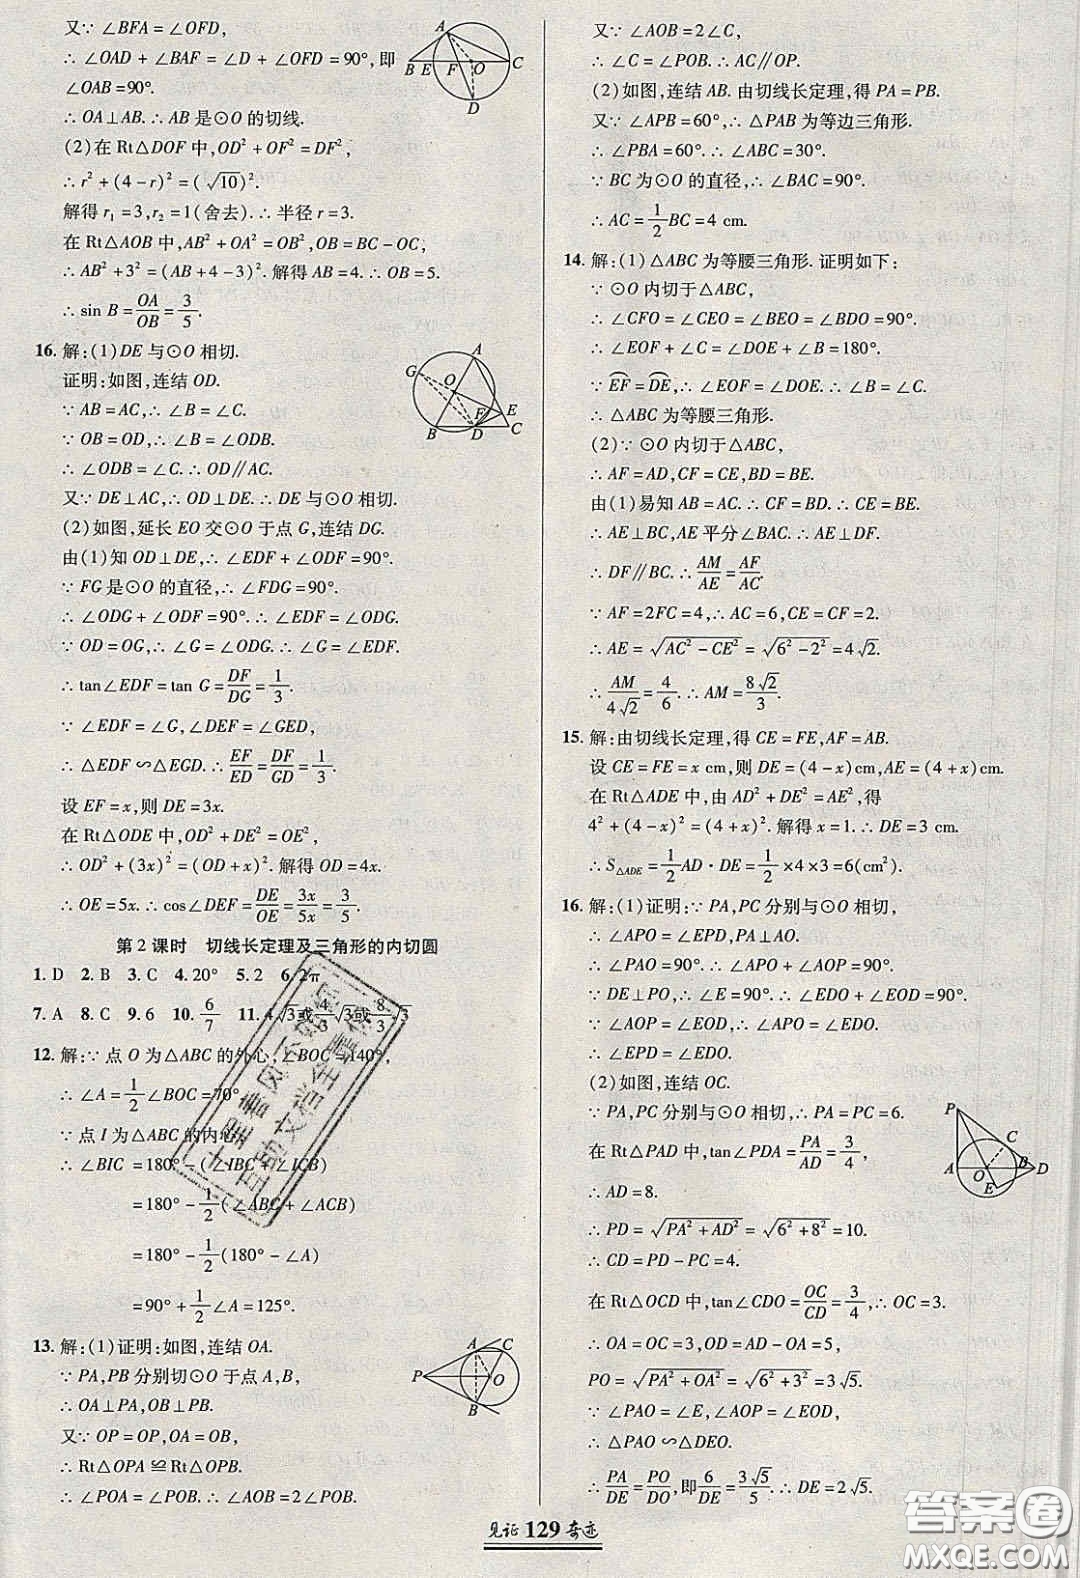 又∵∠BFA=∠OFD,
∴∠OAD+∠BAF=∠D+∠OFD=90°,即
∠OAB=90°.
∴OA⊥AB.∴AB是⊙O的切线.
(2)在Rt△DOF中,OD²+OF²=DF²,
∴r²+(4-r)²=(√10)².
解得r₁=3,r₂=1(舍去).∴半径r=3.
在Rt△AOB中,AB²+OA²=OB²,OB=BC-OC,
∴AB²+3²=(AB+4-3)².解得AB=4.∴OB=5.
∴sin B=OA/OB=3/5.
A
B E F O C
D
16.解:(1)DE与⊙O相切.
证明:如图,连结OD.
∵AB=AC,∴∠B=∠C.
∵OB=OD,∴∠B=∠ODB.
∴∠ODB=∠C.∴OD∥AC.
又∵DE⊥AC,∴OD⊥DE.∴DE与⊙O相切.
(2)如图,延长EO交⊙O于点G,连结DG.
由(1)知OD⊥DE,∴∠EDF+∠ODF=90°.
∵FG是⊙O的直径,∴∠FDG=90°.
∴∠ODG+∠ODF=90°.∴∠ODG=∠EDF.
∵OD=OG,∴∠G=∠ODG.∴∠G=∠EDF.
∴tan∠EDF=tan G=DF/DG=1/3.
∵∠EDF=∠G,∠DEF=∠GED,
∴△EDF∽△EGD.∴EF/ED=DF/GD=1/3.
设EF=x,则DE=3x.
在Rt△ODE中,OD²+DE²=OE²,
∴OD²+(3x)²=(OD+x)².解得OD=4x.
∴OE=5x.∴cos∠DEF=DE/OE=3x/5x=3/5.
A
G
O
F E
B D C
第2课时 切线长定理及三角形的内切圆
1.D 2.B 3.C 4.20° 5.2 6.2π
7.A 8.C 9.6 10.6/7 11.4√3或4/3√3或8/3√3
12.解:∵点O为△ABC的外心,∠BOC=140°,
∴∠A=1/2∠BOC=70°.
∵点I为△ABC的内心,
∴∠BIC=180°-(∠IBC+∠ICB)
=180°-1/2(∠ABC+∠ACB)
=180°-1/2(180°-∠A)
=90°+1/2∠A=125°.
13.解:(1)证明:如图,连结OA.
∵PA,PB分别切⊙O于点A,B,
∴OA⊥PA,OB⊥PB.
又∵OP=OP,OA=OB,
∴Rt△OPA≌Rt△OPB.
∴∠POA=∠POB.∴∠AOB=2∠POB.
A C
P O
B
又∵∠AOB=2∠C,
∴∠C=∠POB.∴AC∥OP.
(2)如图,连结AB.由切线长定理,得PA=PB.
又∵∠APB=60°,∴△PAB为等边三角形.
∴∠PBA=60°.∴∠ABC=30°.
∵BC为⊙O的直径,∴∠BAC=90°.
∴AC=1/2BC=4 cm.
14.解:(1)△ABC为等腰三角形.证明如下:
∵⊙O内切于△ABC,
∴∠CFO=∠CEO=∠BEO=∠BDO=90°.
∴∠EOF+∠C=∠DOE+∠B=180°.
∵EF⌒=DE⌒,∴∠EOF=∠DOE.∴∠B=∠C.
∴△ABC为等腰三角形.
(2)∵⊙O内切于△ABC,
∴AF=AD,CF=CE,BD=BE.
由(1)易知AB=AC.∴CF=BD.∴CE=BE.
∴AE⊥BC,AE平分∠BAC.∴AE⊥DF.
∴DF∥BC.∴AM/AE=AF/AC.
∵AF=2FC=4,∴AC=6,CE=CF=2.
∴AE=√(AC²-CE²)=√(6²-2²)=4√2.
∴AM/4√2=4/6.∴AM=8√2/3.
15.解:由切线长定理,得CE=FE,AF=AB.
设CE=FE=x cm,则DE=(4-x)cm,AE=(4+x)cm.
在Rt△ADE中,由AD²+DE²=AE²,得
4²+(4-x)²=(4+x)².解得x=1.∴DE=3 cm.
∴S△ADE=1/2AD·DE=1/2×4×3=6(cm²).
16.解:(1)证明:∵PA,PC分别与⊙O相切,
∴∠APO=∠EPD,PA⊥AO.
∴∠PAO=90°.∴∠APO+∠AOP=90°.
∵DE⊥PO,∴∠E=90°.∴∠EOD+∠EDO=90°.
∵∠AOP=∠EOD,∴∠APO=∠EDO.
∴∠EPD=∠EDO.
(2)如图,连结OC.
∵PA,PC分别与⊙O相切,∴PA=PC=6.
在Rt△PAD中,tan∠PDA=PA/AD=3/4,
∴AD=8.
∴PD=√(PA²+AD²)=√(6²+8²)=10.
∴CD=PD-PC=4.
在Rt△OCD中,tan∠CDO=OC/CD=3/4,∴OC=3.
∴OA=OC=3,OD=AD-OA=5.
PO=√(PA²+OA²)=√(6²+3²)=3√5.
∵∠PAO=∠E,∠AOP=∠EOD,
∴△PAO∽△DEO.
∴PA/DE=PO/DO,即6/DE=3√5/5.∴DE=2√5.
P
C
A O B D
E
见证129奇迹
答案圈
MXQE.COM